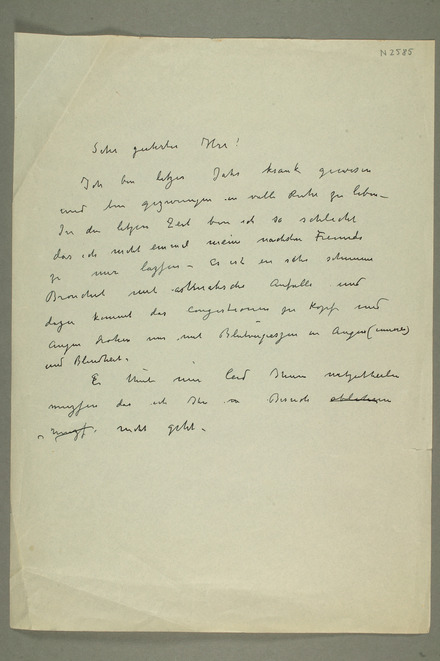 N 2585
Sehr geehrter Herr!
Ich bin letzes Jahr krank gewesen
und bin gezwungen in volle Ruhe zu leben –
In der letzen Zeit bin ich so schlecht
das ich nicht einmal meine nächsten Freunde
zu mir lassen – Es ist en sehr schlimme
Bronchit mit asthmatische Anfälle und
dazu kommt das Congestionen zu Kopf und
Augen drohen mir mit in Augen (innere)
und Blindheit.
Es thut mir Leid Ihnen
mussen das ich Ihr
nicht geht –